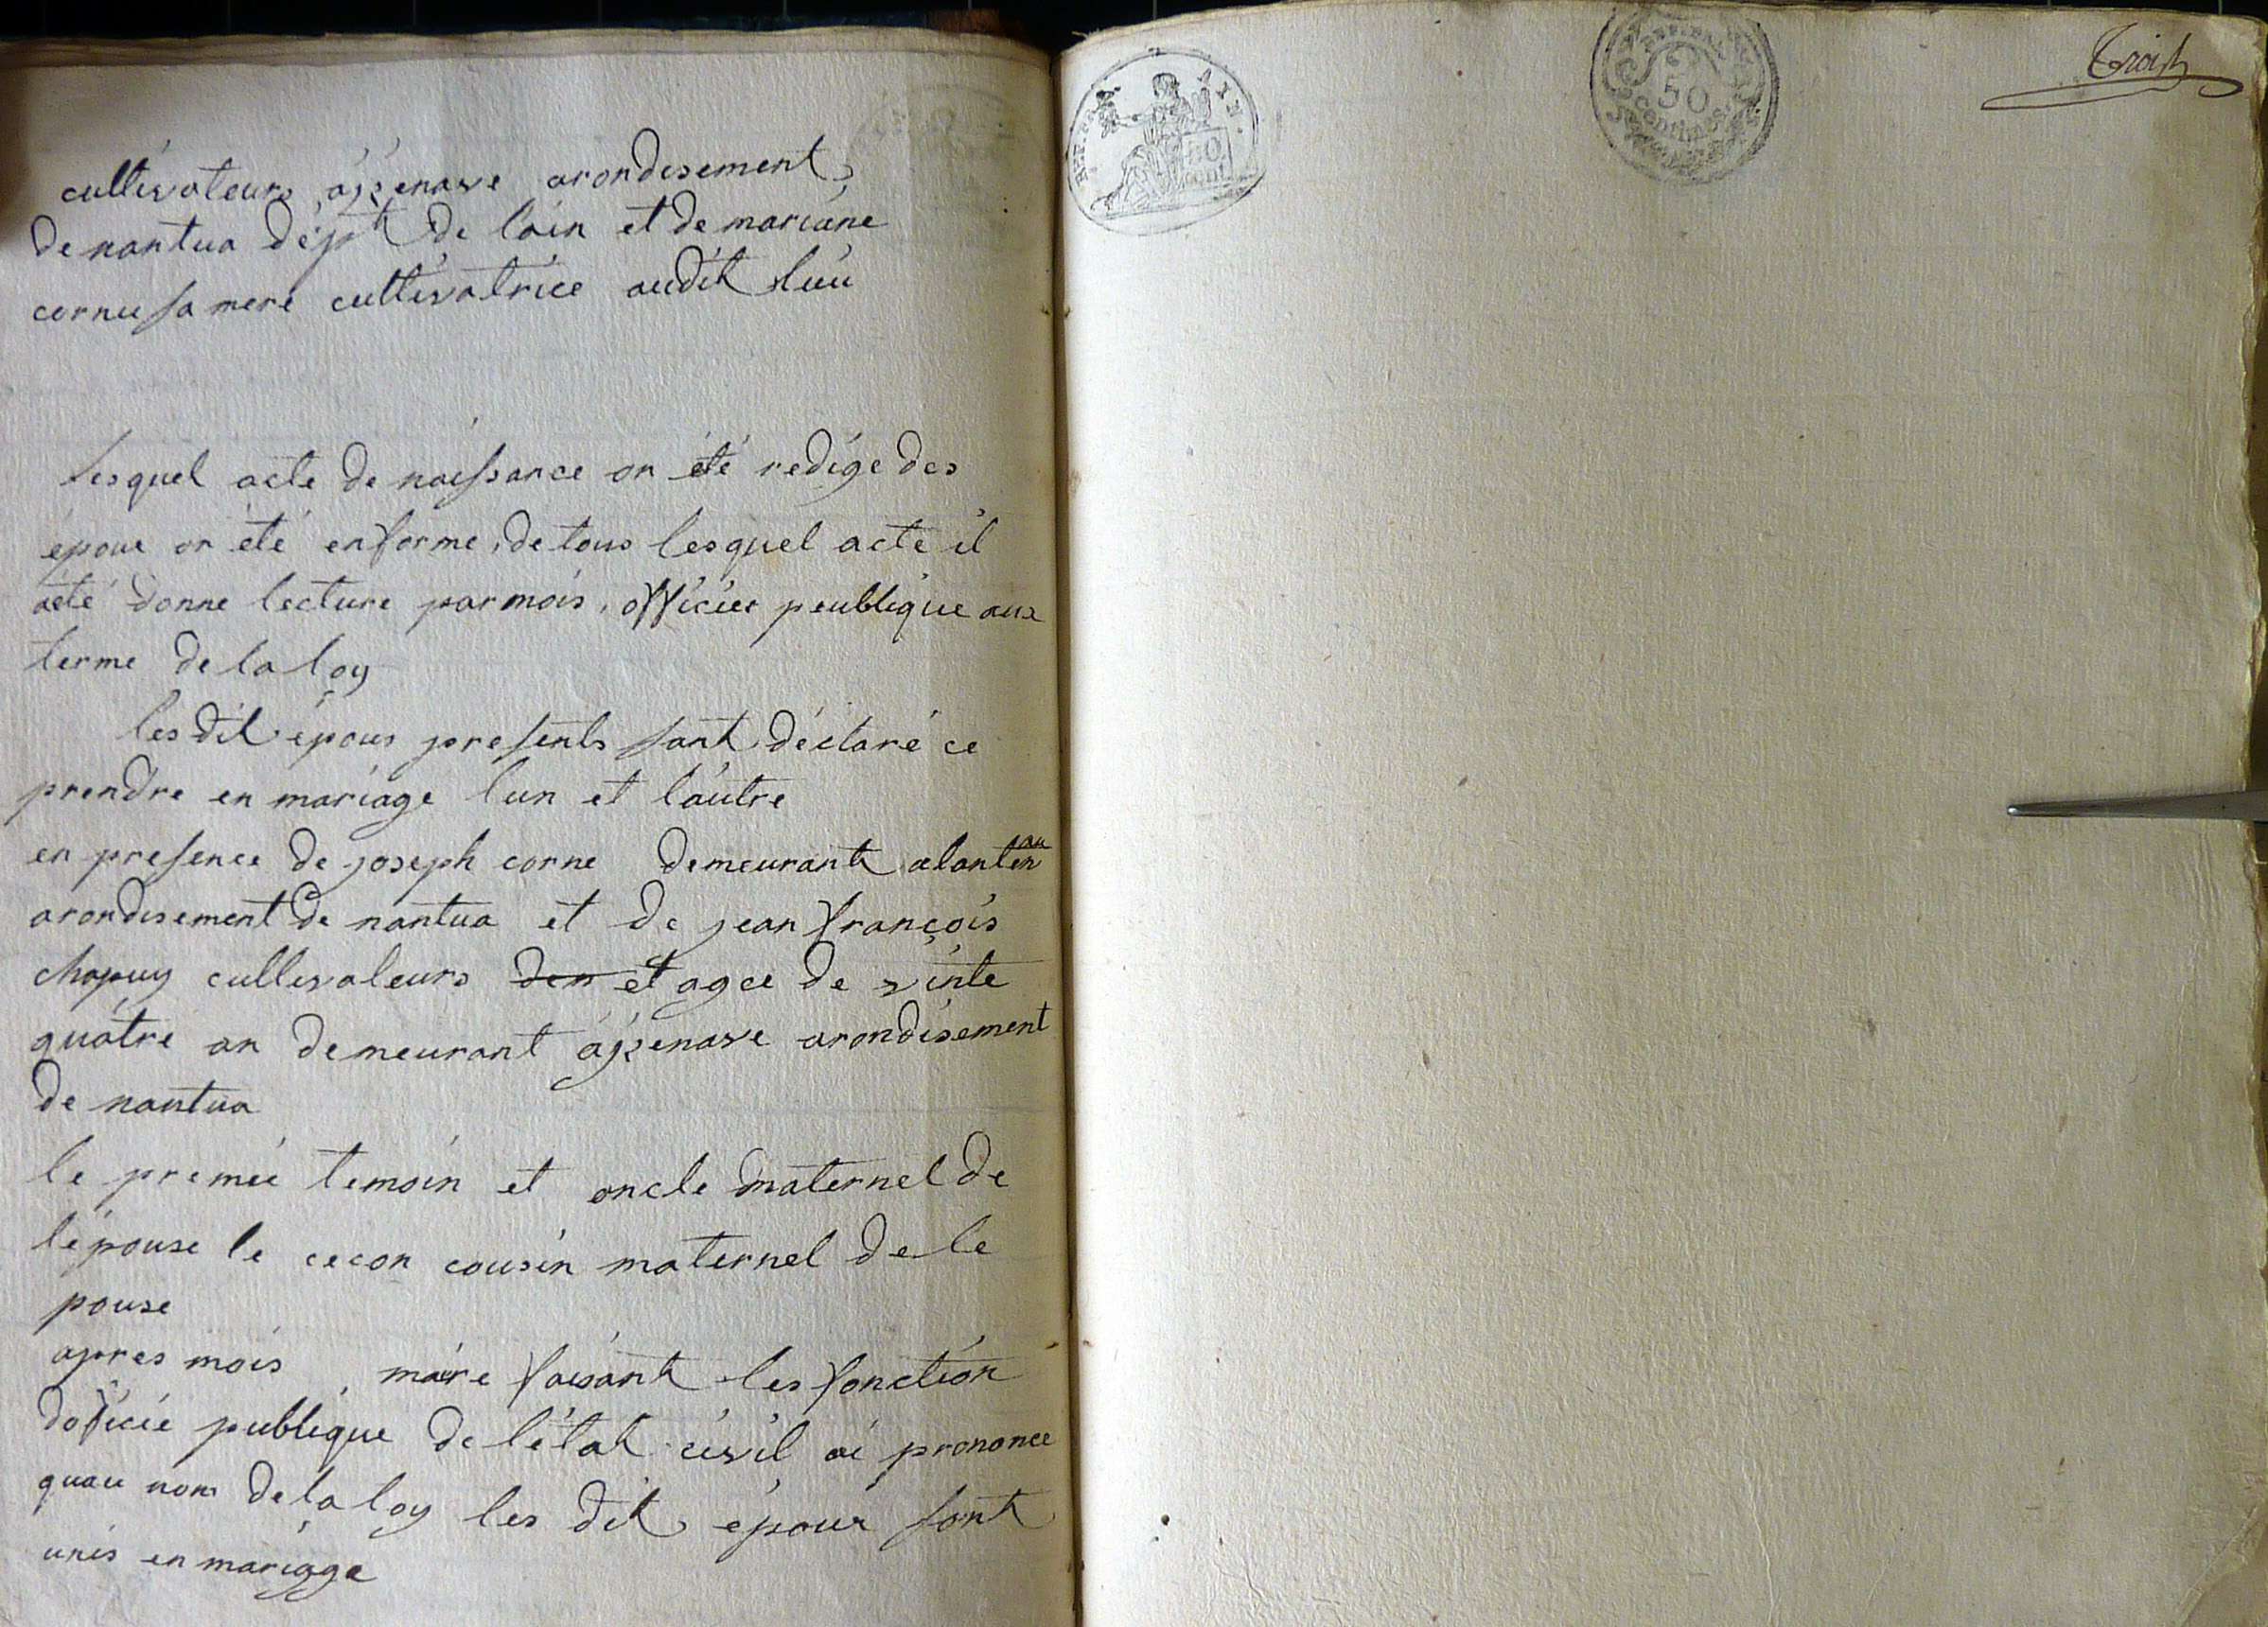 cultivateurs apenave arondisement
de nantua dépt de lain et de mariane
cornu sa mere cultivatrice audit lieu
lesquel acte de naissance on été redige des
epoux on été en forme, de tous lesquel acte il
aété donne lecture par mois, officier peublique aux
terme de la loy
les dit epous presents sont déclaré ce
prendre en mariage lun et lautre
en presence de joseph corne demeurant
arondisement de nantua et de jean françois
chapuy cultivateurs den et agee de vinte
quatre an demeurant apenave arondisement
de nantua
le premié temoin et oncle maternel de
lépouse le cecon cousin maternel de le
pouse
apres mois maire faisant les fonction
doficié publique de létat civil ai prononce
quau nom de la loy les dit epoux sont
unis en mariage
REP. FRA
50
cent
50
centimes
Trois